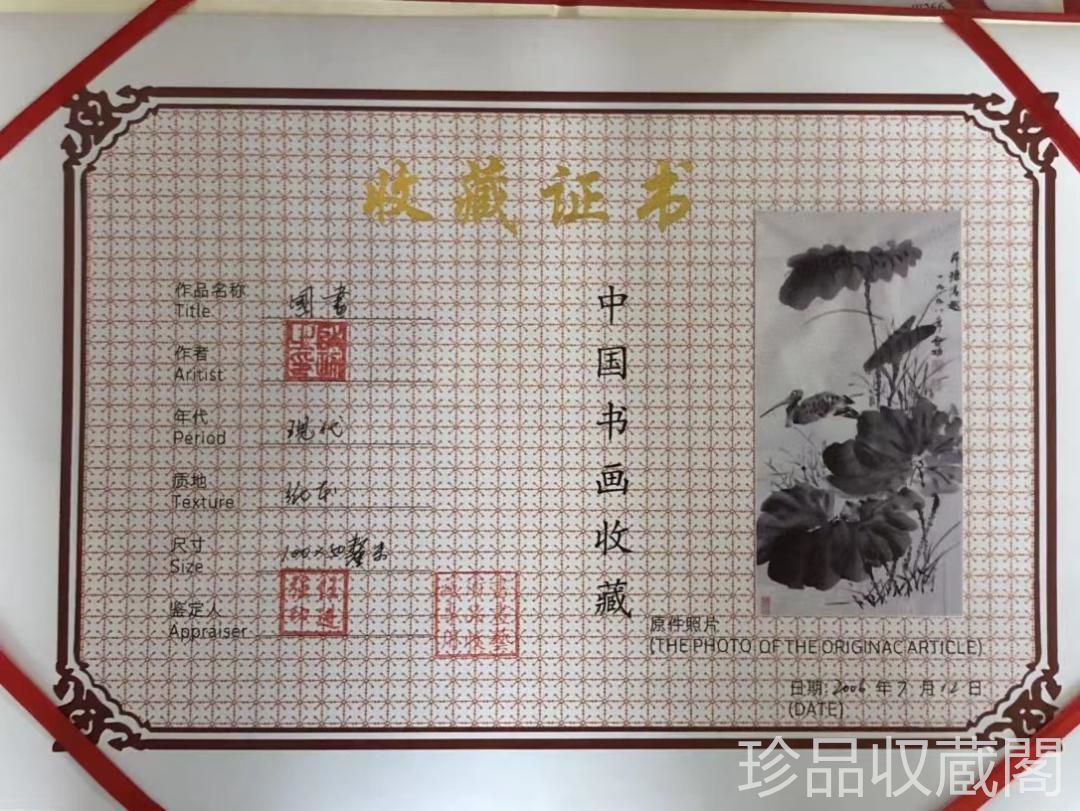 收藏证书
作品名称
Title
国画
作者
Aritist
年代
Period
现代
质地
Texture
纸本
尺寸
Size
100×50厘米
鉴定人
Appraiser
中国书画收藏
原件照片
(THE PHOTO OF THE ORIGINAC ARTICLE)
日期: 2006 年 7 月 12 日
(DATE)
珍品收藏閣